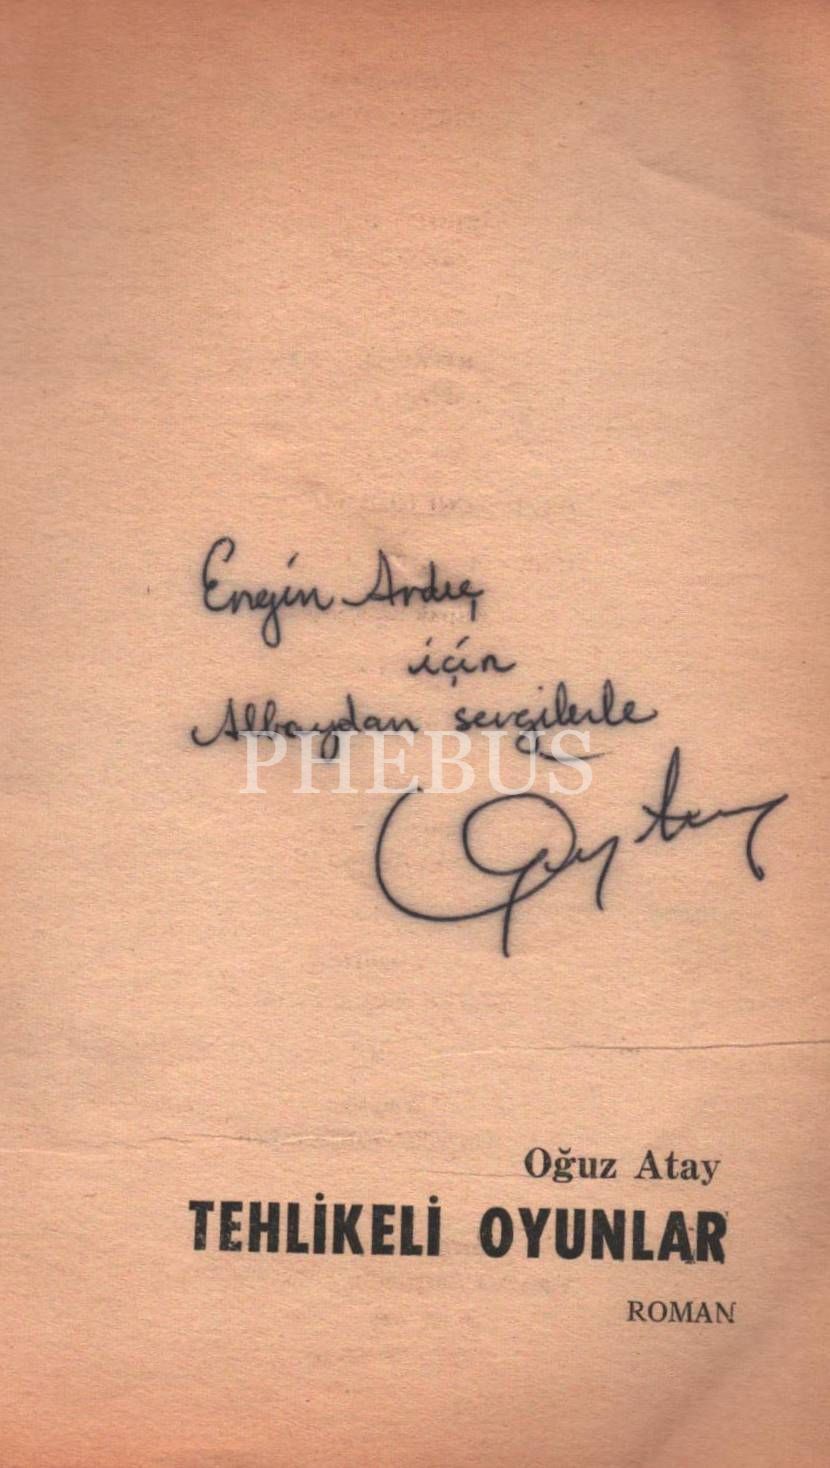 Engin Ardıç
için
Albaydan sevgilerle
PHEBUS
Oğuz Atay
TEHLİKELİ OYUNLAR
ROMAN